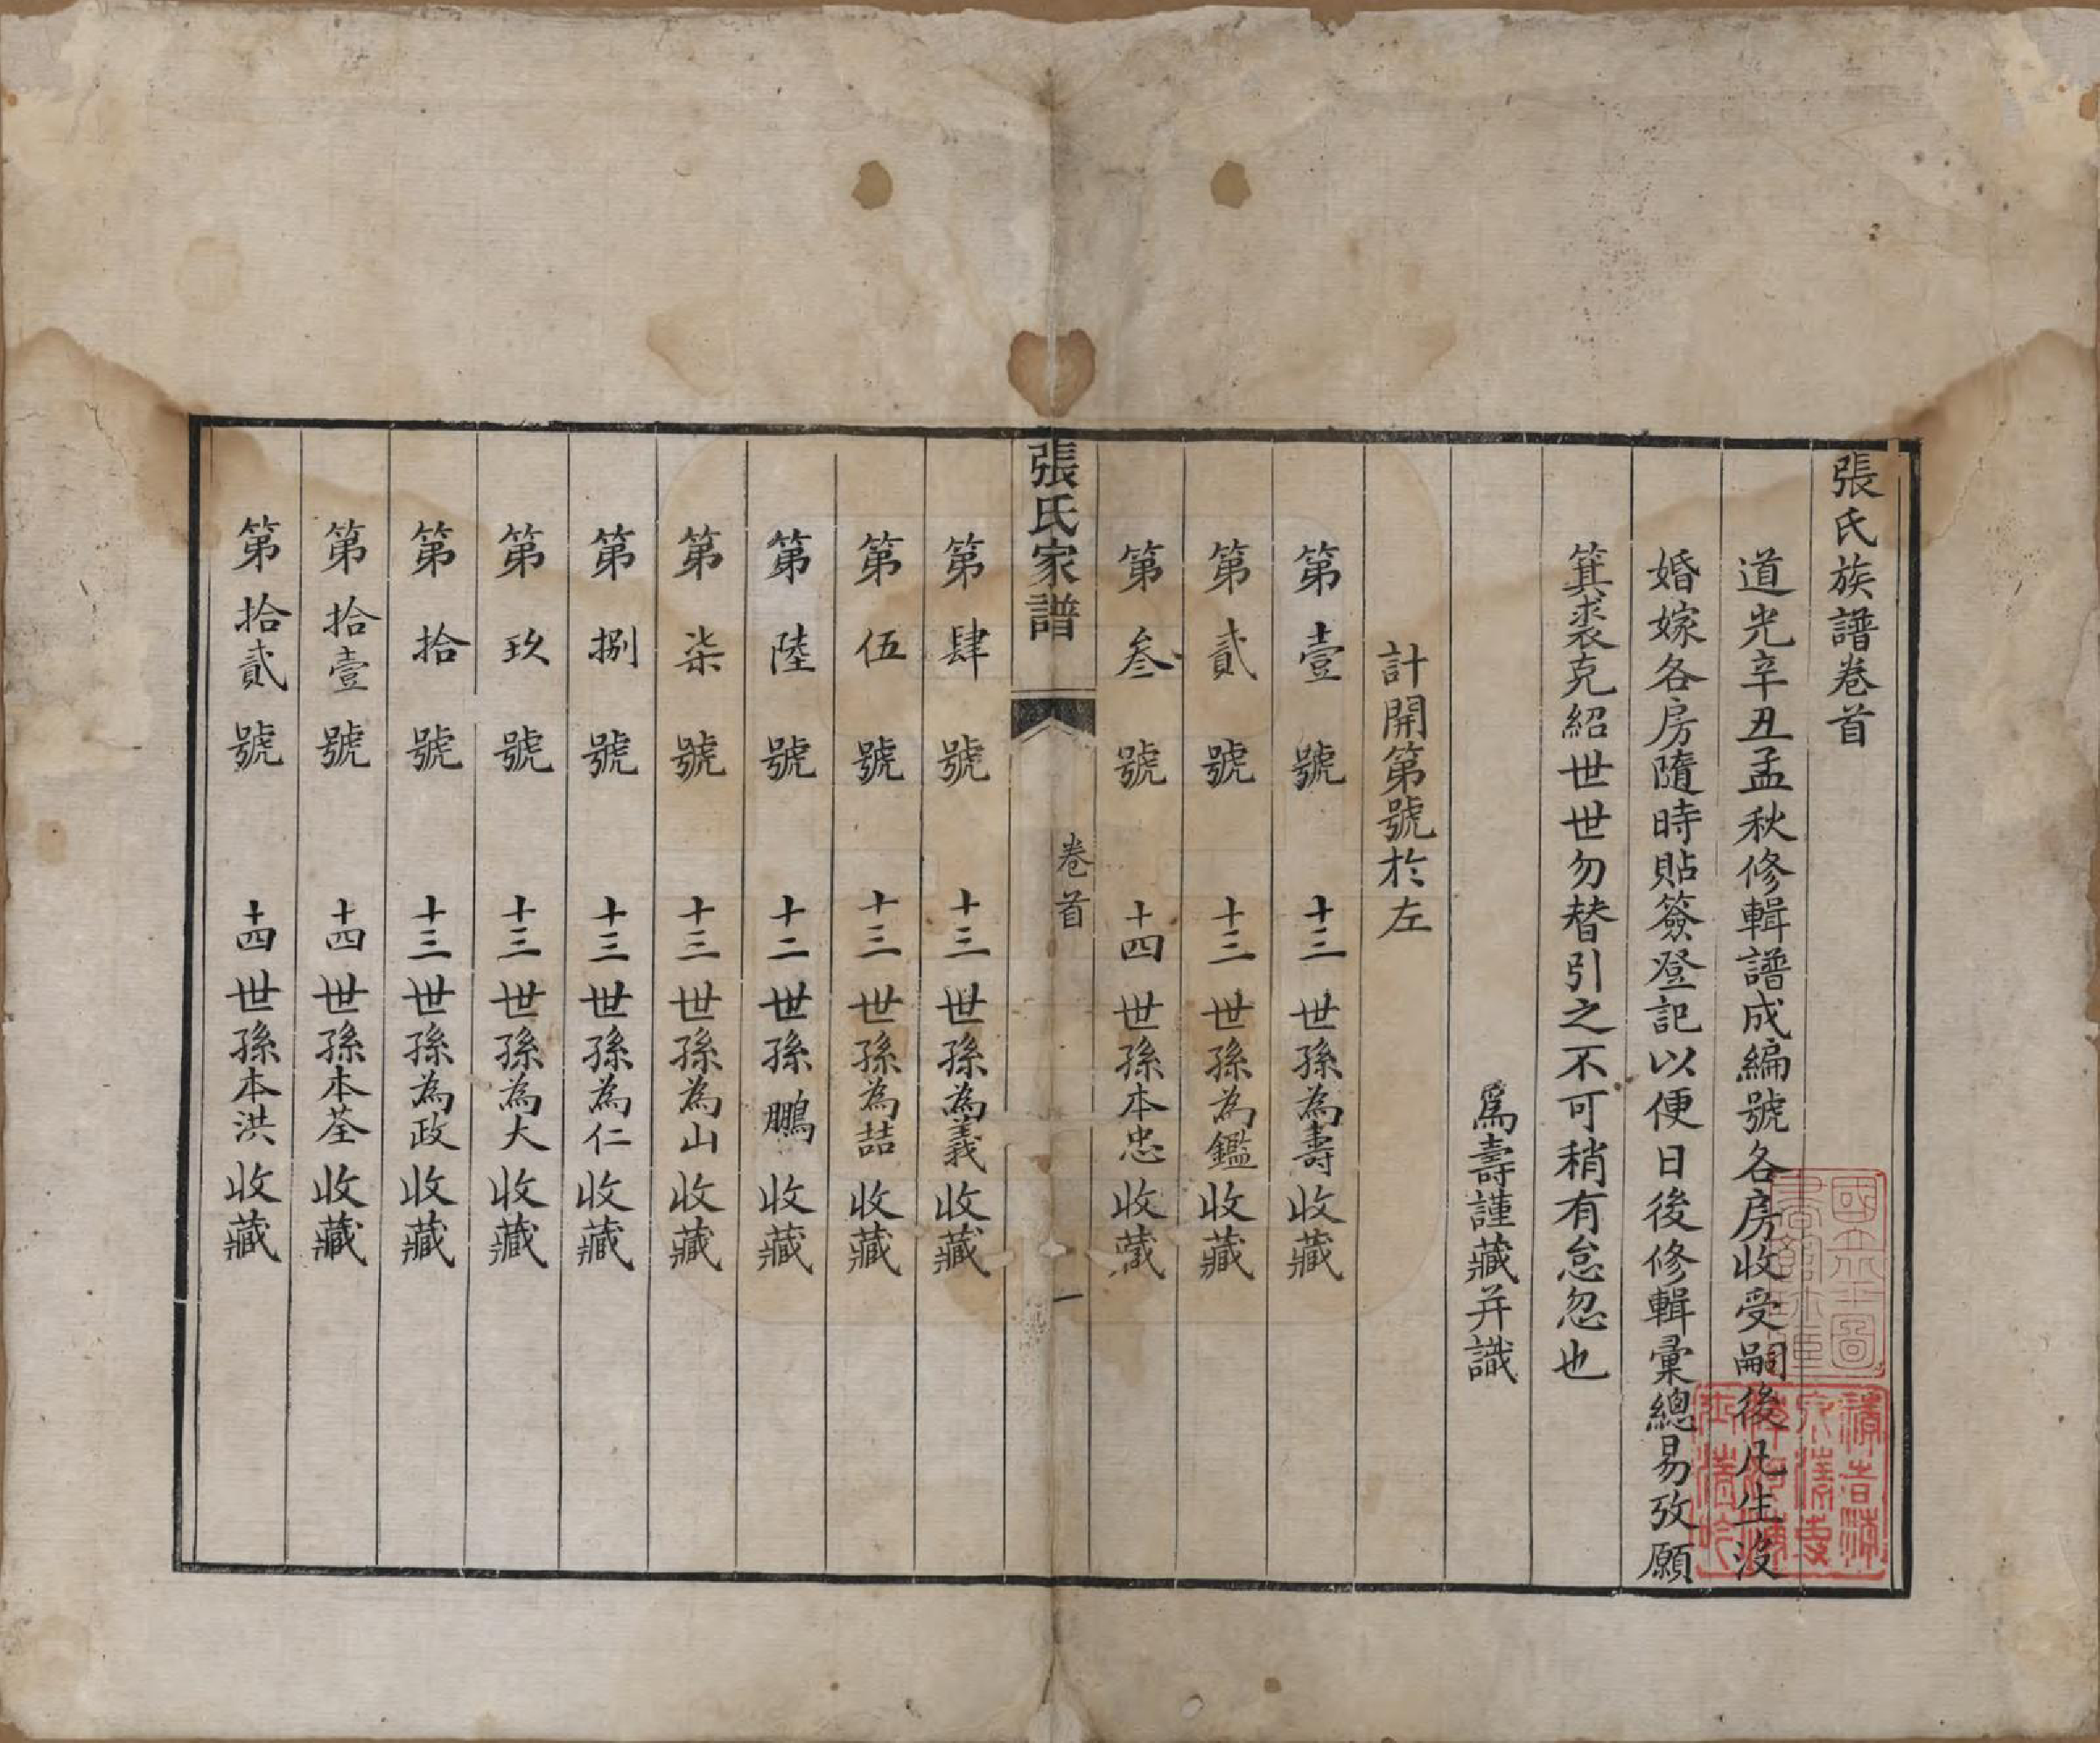 張氏族譜卷首
道光辛丑孟秋修輯譜成編號各房收受嗣後凡生没
婚嫁各房隨時貼簽登記以便日後修輯彙總易攷願
箕裘克紹世世勿替引之不可稍有怠忽也
爲壽謹藏并識
計開第號於左
第壹號 十三世孫為壽收藏
第貳號 十三世孫為鑑收藏
第叁號 十四世孫本忠收藏
張氏家譜 卷首 一
第肆號 十三世孫為義收藏
第伍號 十三世孫為喆收藏
第陸號 十二世孫鵬收藏
第柒號 十三世孫為山收藏
第捌號 十三世孫為仁收藏
第玖號 十三世孫為大收藏
第拾號 十三世孫為政收藏
第拾壹號 十四世孫本荃收藏
第拾貳號 十四世孫本洪收藏